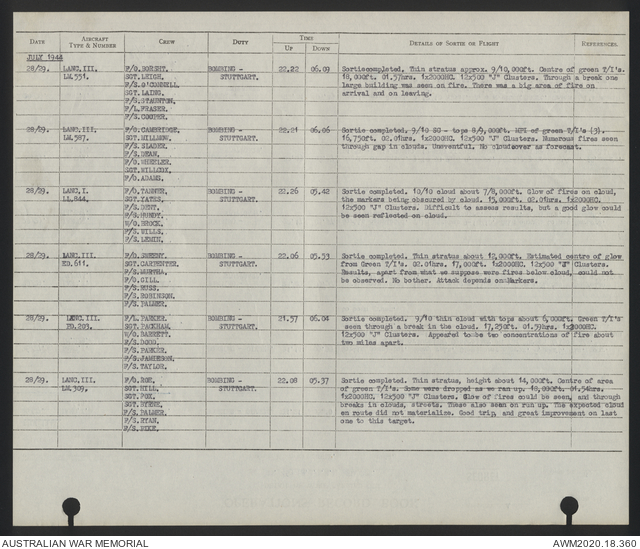 DATE AIRCRAFT TYPE & NUMBER CREW DUTY TIME UP DOWN DETAILS OF SORTIE OR FLIGHT REFERENCES.
JULY 1944
28/29. LANC.III. F/O. BORSHT. BOMBING - 22.22 06.09 Sortiecompleted. Thin stratus approx. 9/10,000ft. Centre of green T/I's.
LM.551. SGT. LEIGH. STUTTGART. 18,000ft. 01.57hrs. 1x2000HC. 12x500 "J" Clusters. Through a break one
F/S. O'CONNELL. large building was seen on fire. There was a big area of fire on
SGT. LAING. arrival and on leaving.
F/S. STAUNTON.
F/L. FRASER.
F/S. COOPER.
28/29. LANC.III. F/O. CAMBRIDGE. BOMBING - 22.21 06.06 Sortie completed. 9/10 SC - tops 8/9,000ft. MPI of green T/I's (3).
LM.587. SGT. STUTTGART. 16,750ft. 02.01hrs. 1x2000HC. 12x500 "J" Clusters. Numerous fires seen
F/S. SLADER. through gap in clouds. Uneventful. No cloudcover as forecast.
F/S. DEAN.
F/O. WHEELER.
SGT. WILLCOX.
F/O. ADAMS.
28/29. LANC.I. F/O. TANNER. BOMBING - 22.26 05.42 Sortie completed. 10/10 cloud about 7/8,000ft. Glow of fires on cloud,
LL.844. SGT. YATES. STUTTGART. the markers being obscured by cloud. 15,000ft. 02.01hrs. 1x2000HC.
F/S. DENT. 12x500 "J" Clusters. Difficult to assess results, but a good glow could
F/S. be seen reflected on cloud.
W/O. BROCK.
F/S. WILLS.
F/S.
28/29. LANC.III. F/O. BOMBING - 22.06 05.53 Sortie completed. Thin stratus about 12,000ft. Estimated centre of glow
ED.611. SGT. CARPENTER. STUTTGART. from Green T/I's. 02.01hrs. 17,000ft. 1x2000HC. 12x500 "J" Clusters.
F/S. MURTHA. Results, apart from what we suppose were fires below cloud, could not
F/O. GILL. be observed. No bother. Attack depends on Markers.
F/S. RUSS.
F/S. ROBINSON.
F/S. PALMER.
28/29. LANC.III. F/L. PARKER. BOMBING - 21.57 06.04 Sortie completed. 9/10 thin cloud with tops about 6,000ft. Green T/I's
ED.203. SGT. PACKHAM. STUTTGART. seen through a break in the cloud. 17,250ft. 01.59hrs. 1x2000HC.
W/O. BARRETT. 12x500 "J" Clusters. Appeared to be two concentrations of fire about
F/S. DODD. two miles apart.
F/S. PARKER.
F/S. JAMIESON.
F/S. TAYLOR.
28/29. LANC.III. F/O. ROE. BOMBING - 22.08 05.37 Sortie completed. Thin stratus, height about 14,000ft. Centre of area
LM.309. SGT. HILL. STUTTGART. of green T/I's. Some were dropped as we ran up. 18,000ft. 01.54hrs.
SGT. FOX. 1x2000HC. 12x500 "J" Clusters. Glow of fires could be seen, and through
SGT. BYRNE. breaks in clouds, streets. These also seen on run up. The expected cloud
F/S. PALMER. en route did not materialize. Good trip, and great improvement on last
F/S. RYAN. one to this target.
F/S.
AUSTRALIAN WAR MEMORIAL AWM2020.18.360